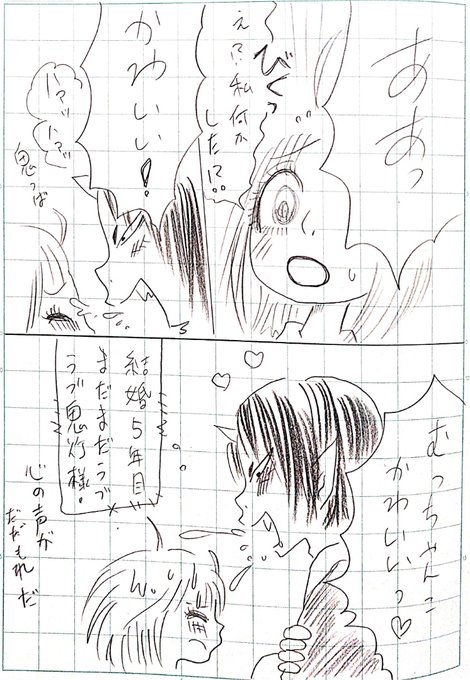 ああっ
びくっ
え!?私何か
した!?
かわいい!
ハァッハァッ
鬼っぱ
むっちゃんこ
かわいいっ♡
結婚5年目
まだまだうぶ
うぶ鬼灯様!
心の声が
だだもれだ